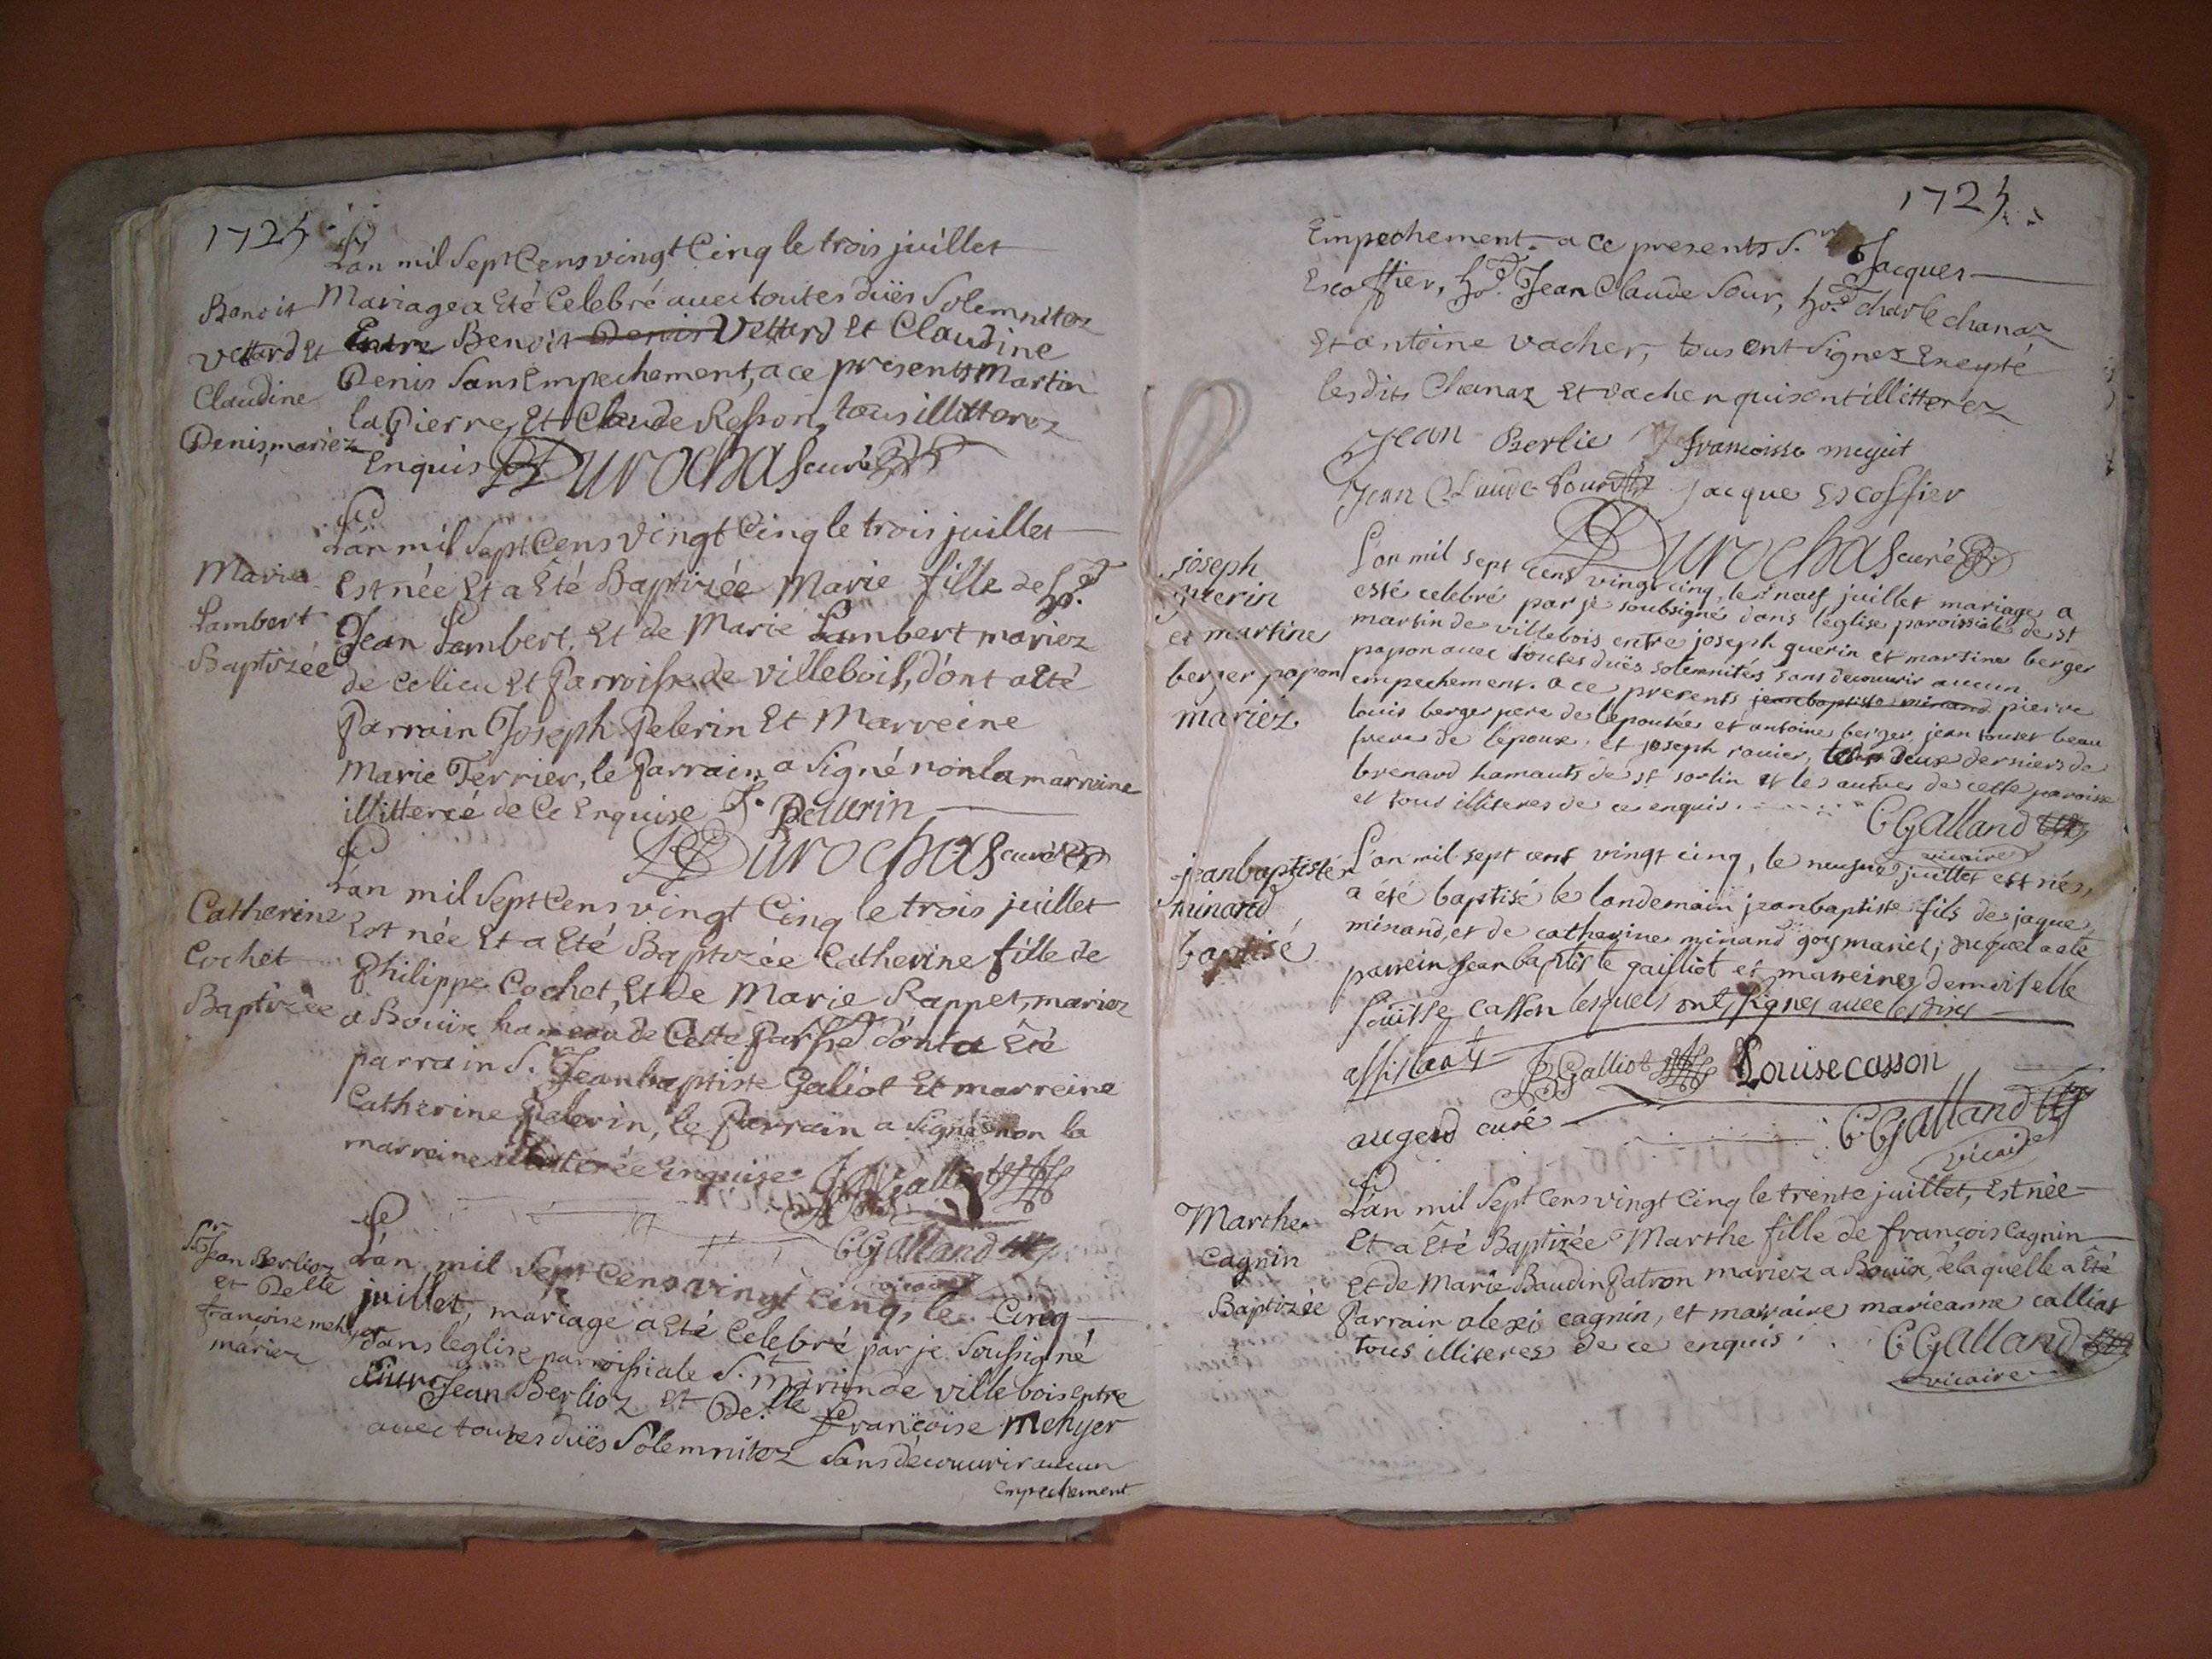 1725
L'an mil Sept Cens vingt Cinq le trois juillet
Benoit Vettard Et Claudine Denis, mariez
Mariage a Eté Celebré avec toutes duës Solemnitez
Entre Benoit Denis Vettard Et Claudine
Denis Sans Empechement, a ce presents Martin
la Pierre, Et Claude Resson, tous illitterez
Enquis Durochas curé
Marie
Lambert
Baptizée
L'an mil Sept Cens Vingt Cinq le trois juillet
Est née Et a Eté Baptizée Marie fille de
Jean Lambert, Et de Marie Lambert mariez
de ce lieu Et Parroisse de villebois, dont a Eté
Parrain Joseph Pelerin Et Marreine
Marie Terrier, le Parrain a Signé non la marreine
illitterée de Ce Enquise J. Pellerin
Durochas curé
Catherine
Cochet
Baptizée
L'an mil Sept Cens vingt Cinq le trois juillet
Est née Et a Eté Baptizée Catherine fille de
Philippe Cochet, Et de Marie Rappet, mariez
a Bouïx hameau de Cette Parsse dont a Eté
parrain Sr. Jean baptiste Galiot Et marreine
Catherine Pelerin, le Parrain a Signé non la
marreine illitterée Enquise JBGalliot
CGalland
vicaire
Sr. Jean Berlioz
et Delle
françoise mehyer
mariez
L'an mil Sept Cens vingt Cinq, le Cinq
juillet, mariage a Eté Celebré par je Soussigné
dans leglise parroissiale St. martin de villebois entre
Sieur Jean Berlioz Et Delle Françoise Mehyer
avec toutes duës Solemnitez Sans découvrir aucun
Empechement
1725
Empechement. a ce presents Sr. Jacques
Escoffier, ho. Jean Claude Sour, ho. Charle chanaz
Et antoine vacher, tous ont Signez Excepté
lesdits Chanaz Et vacher qui sont illitterez
Jean Berlie françoisse meyict
Jean Claude Sour Jacque Escoffier
Durochas curé
joseph
guerin
et martine
berger papon
mariez
L'an mil sept cens vingt cinq, le neuf juillet mariage a
esté celebré par je soubsigné dans l'église paroissiale de st
martin de villebois entre joseph guerin et martine berger
papon avec toutes duës solemnités sans decouvrir aucun
empechement. a ce presents jeanbaptiste minand pierre
louis berger pere de l'epousée et antoine berger, jean touret beau
frere de l'epoux, et joseph ravier, les deux derniers de
brenard hamauts de st sorlin et les autres de cette paroisse
et tous illiteres de ce enquis.
CGalland
vicaire
jeanbaptiste
minand
baptisé
L'an mil sept cens vingt cinq, le juillet est né,
a été baptisé le landemain jeanbaptiste fils de jaque
minand, et de catherine minand goy mariés; duquel a eté
parrein jean baptiste gailliot et marreine demoiselle
Loüisse Casson lesquels ont signés avec les sires
assistants JBGalliot Loüise casson
augerd curé CGalland
vicaire
Marthe
Cagnin
Baptizée
L'an mil Sept Cens vingt Cinq le trente juillet, Est née
Et a Eté Baptizée Marthe fille de françois Cagnin
Et de Marie Baudin Patron mariez a Bouïx, de laquelle a Eté
Parrain alexi cagnin, et marraine marieanne calliat
tous illiteres de ce enquis.
CGalland
vicaire